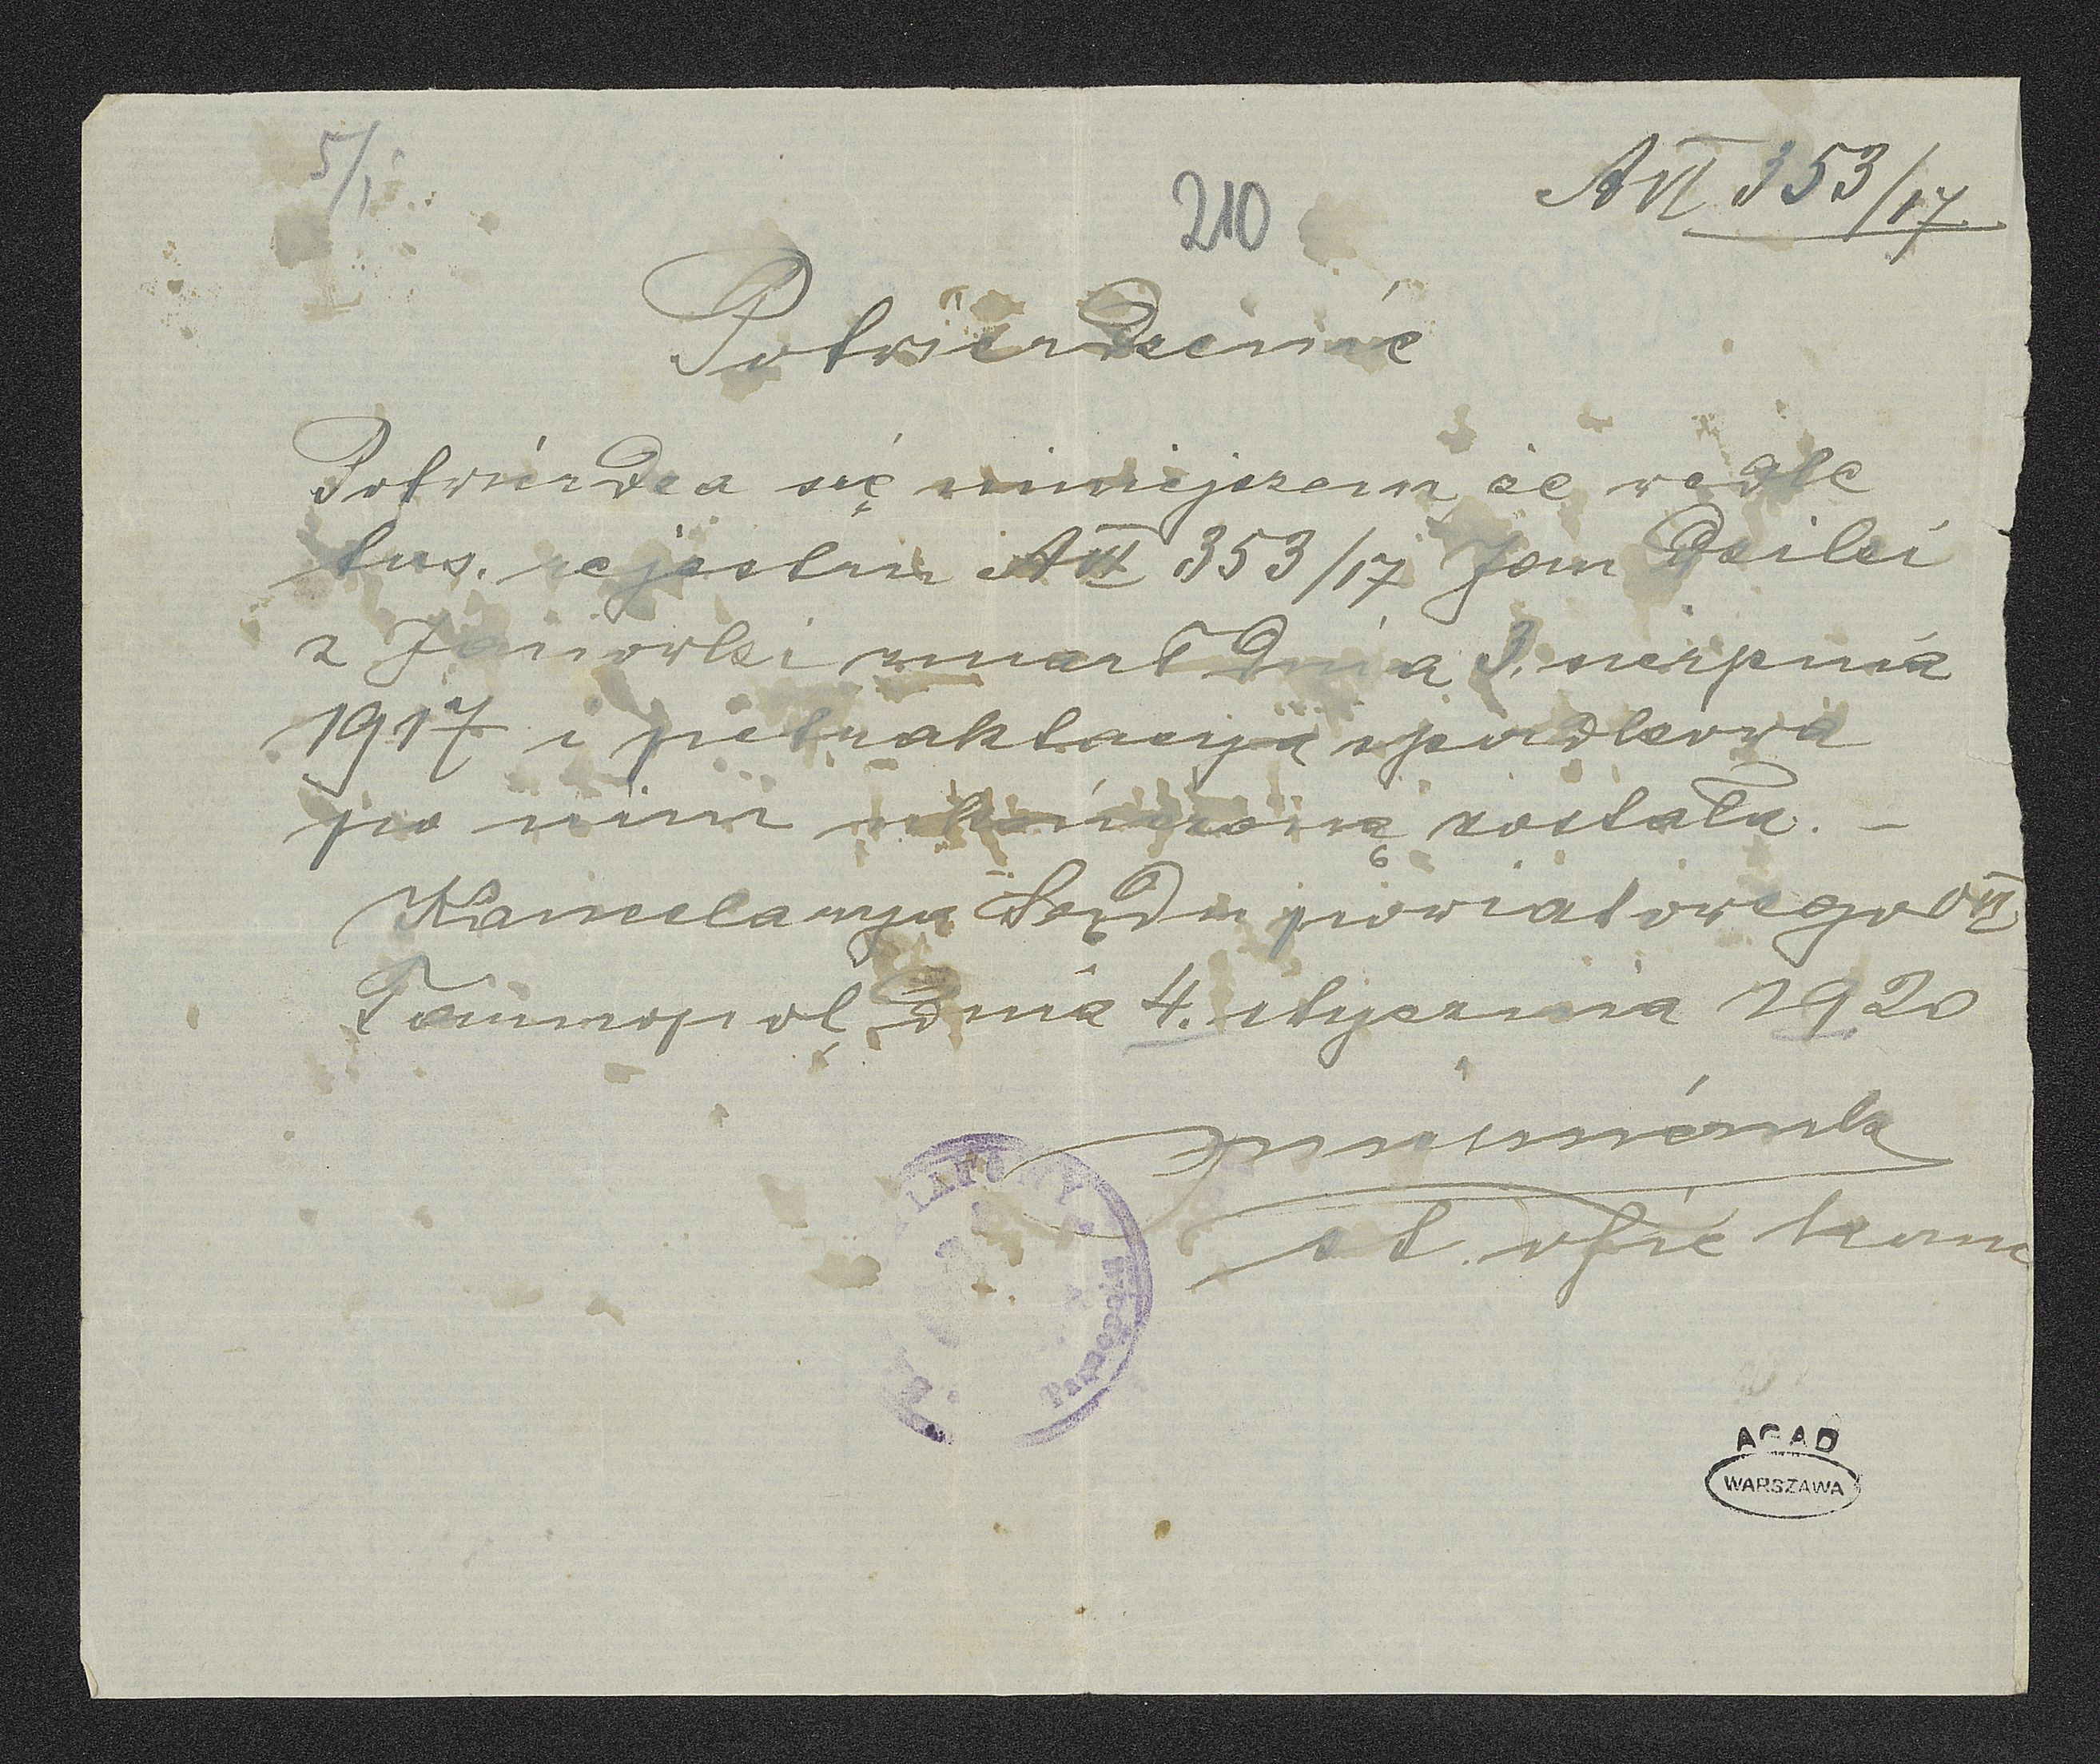 5/1
210
A VI 353/17
Potwierdzenie
Potwierdza się niniejszem że wedle
tus. rejestru A VI 353/17 Jan Dzilci
z Janówki zmarł dnia 3. sierpnia
1917 i pertraktacya spadkowa
po nim ukończoną została. –
Kancelarya Sądu powiatowego O VI
Tarnopol, dnia 4. stycznia 1920
st. ofic kanc
POWIATOWY
AGAD
WARSZAWA